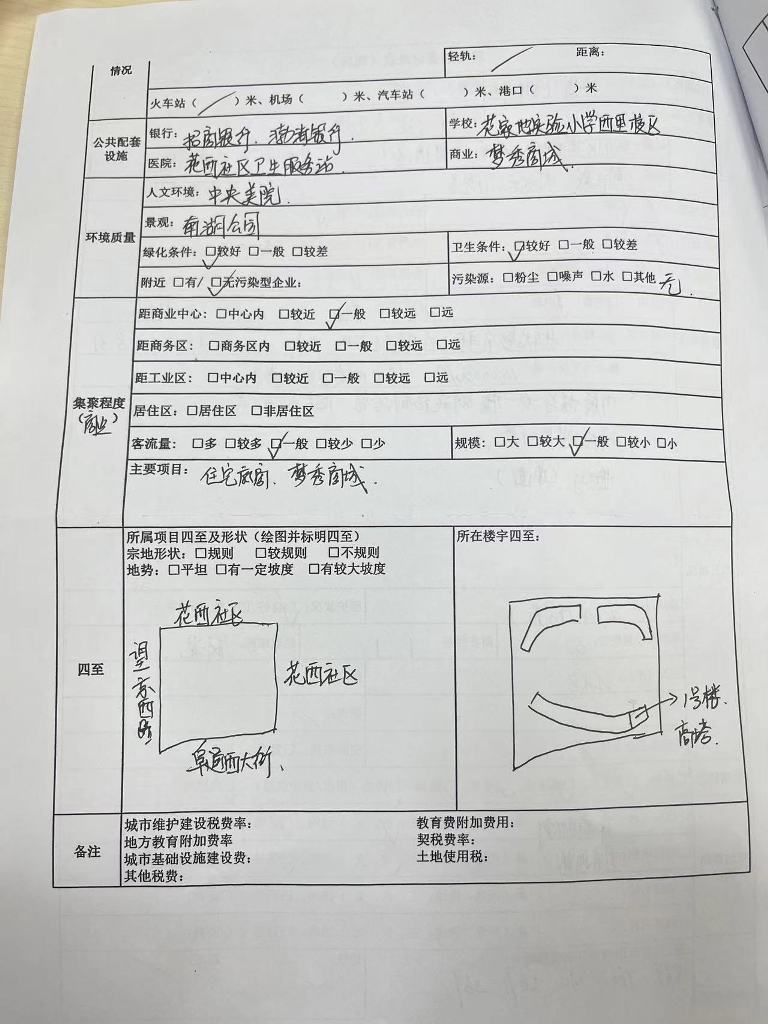 情况
轻轨： 距离：
火车站（ ）米、机场（ ）米、汽车站（ ）米、港口（ ）米
公共配套设施
银行：招商银行、渤海银行． 学校：花家地实验小学西里校区
医院：花西社区卫生服务站． 商业：梦秀商城．
环境质量
人文环境：中央美院．
景观：南湖公园
绿化条件：☑较好 □一般 □较差 卫生条件：☑较好 □一般 □较差
附近 □有/ ☑无污染型企业： 污染源：□粉尘 □噪声 □水 □其他 无．
集聚程度
（商业）
距商业中心：□中心内 □较近 ☑一般 □较远 □远
距商务区：□商务区内 □较近 □一般 □较远 □远
距工业区：□中心内 □较近 □一般 □较远 □远
居住区：□居住区 □非居住区
客流量：□多 □较多 ☑一般 □较少 □少 规模：□大 □较大 ☑一般 □较小 □小
主要项目：住宅底商、梦秀商城．
四至
所属项目四至及形状（绘图并标明四至） 所在楼宇四至：
宗地形状：□规则 □较规则 □不规则
地势：□平坦 □有一定坡度 □有较大坡度
花西社区
望京西路
花西社区
阜通西大街、
1号楼．
备注
城市维护建设税费率： 教育费附加费用：
地方教育附加费率 契税费率：
城市基础设施建设费： 土地使用税：
其他税费：